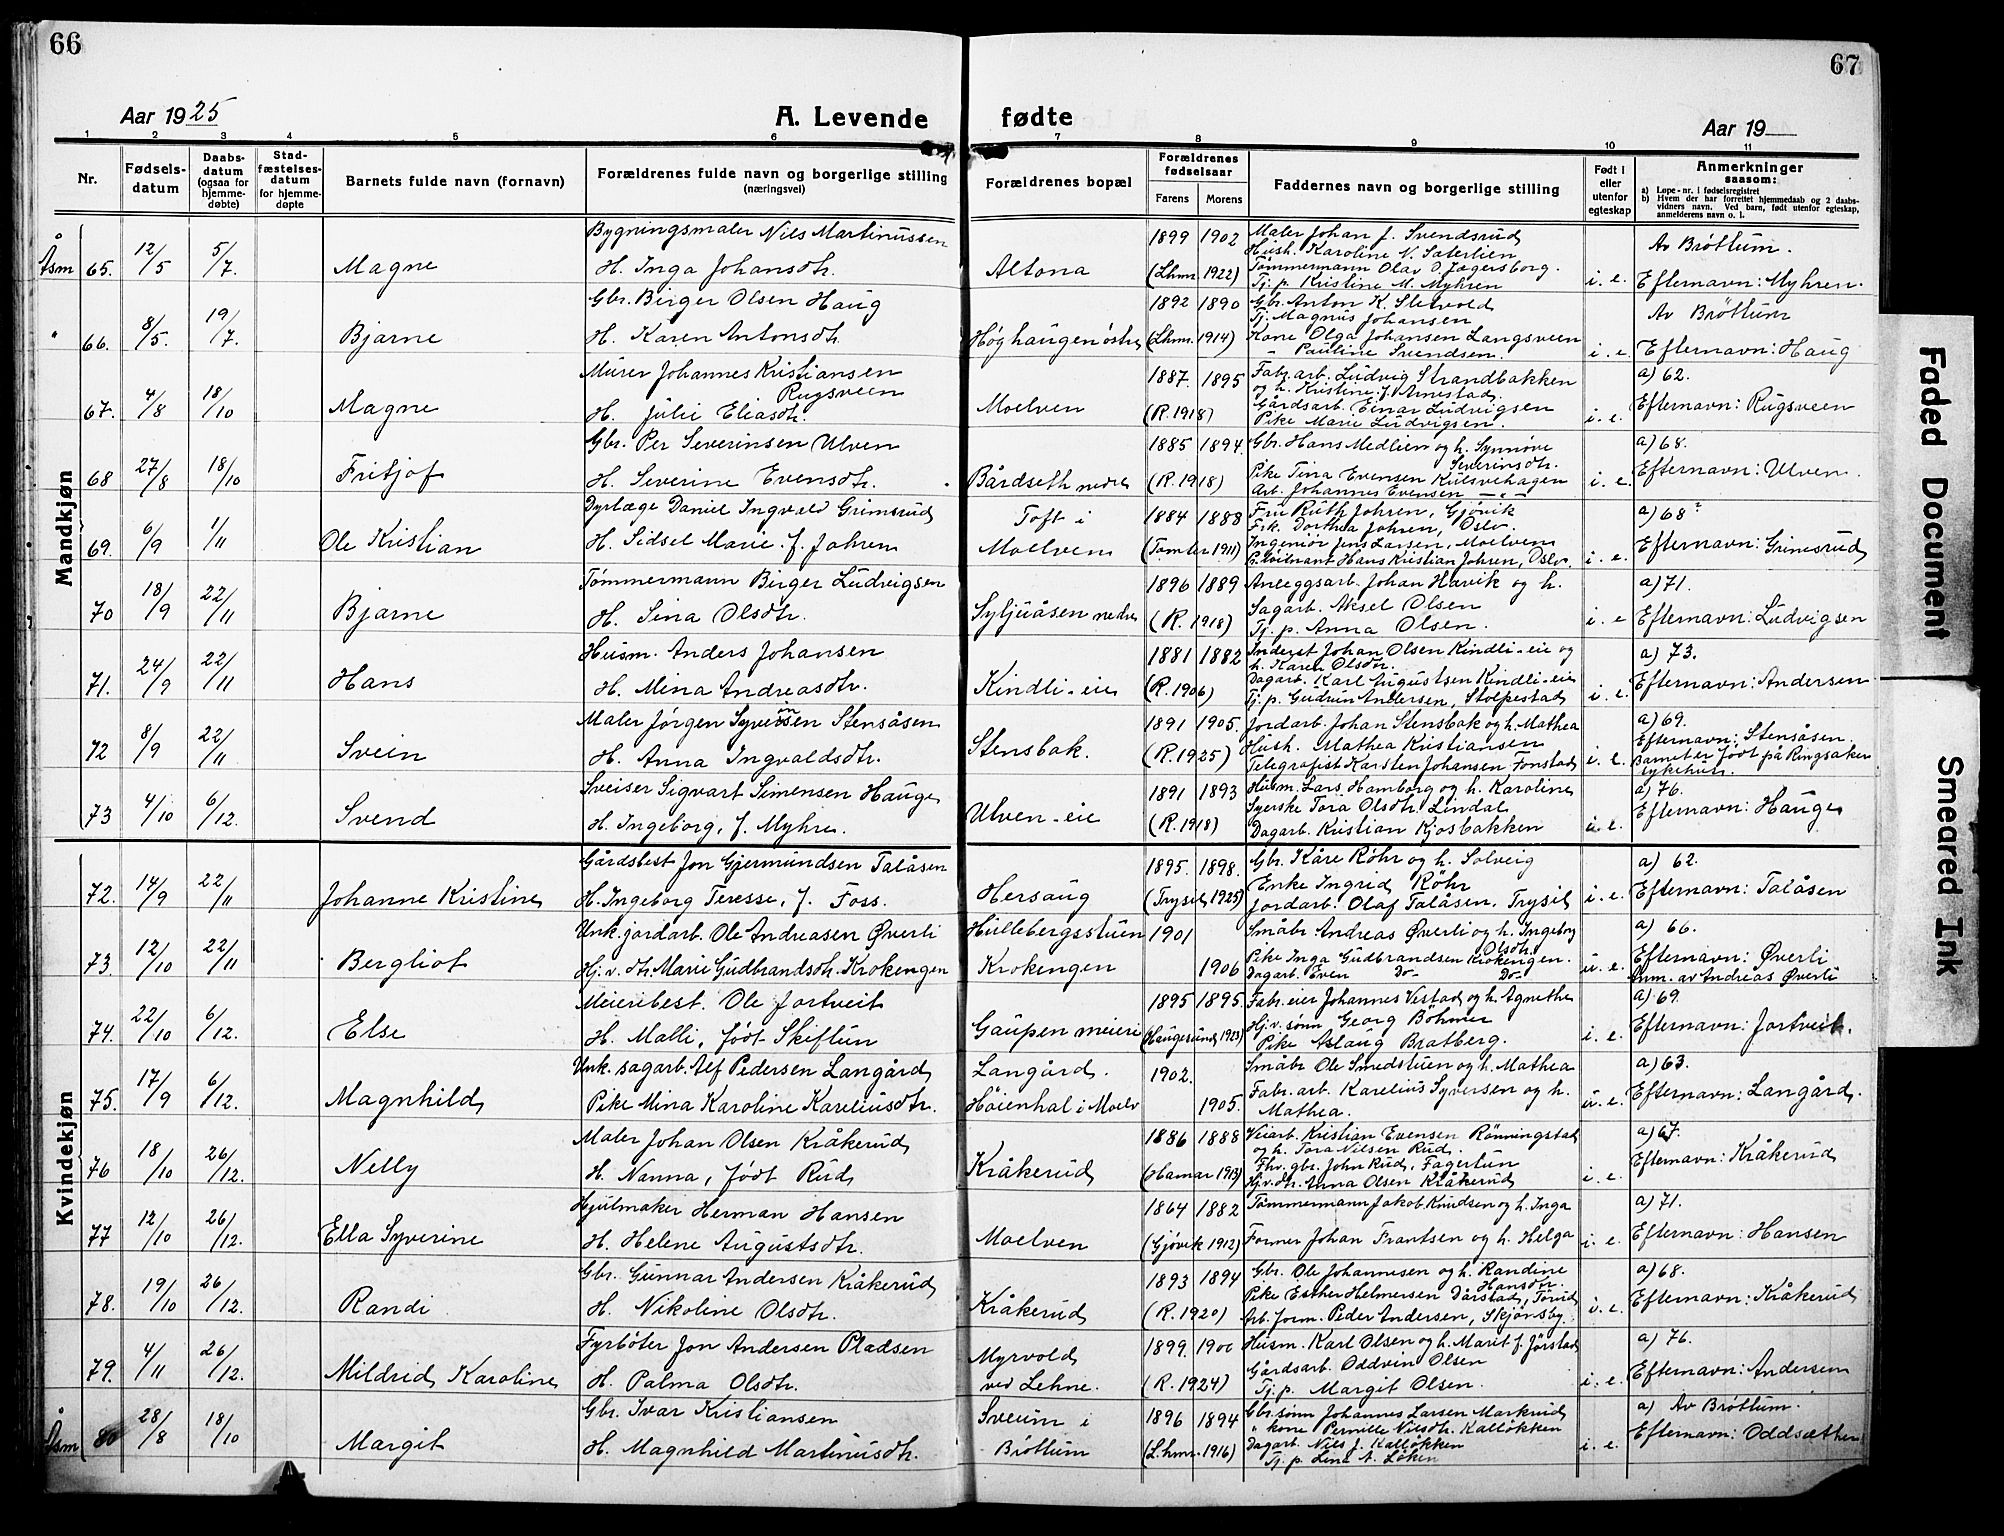 66
67
Aar 1925
A. Levende
fødte
Aar 19
1 2 3 4 5 6 7 8 9 10 11
Nr.
Fødsels-datum
Daabs-datum (ogsaa for hjemme-døbte)
Stad-fæstelses-datum for hjemme-døpte
Barnets fulde navn (fornavn)
Forældrenes fulde navn og borgerlige stilling (næringsvei)
Forældrenes bopæl
Forældrenes fødselsaar
Farens Morens
Faddernes navn og borgerlige stilling
Født i eller utenfor egteskap
Anmerkninger saasom:
a) Løpe-nr. i fødselsregistret
b) Hvem der har forrettet hjemmedaab og 2 daabs-vidners navn. Ved barn, født utenfor egteskap, anmelderens navn o. l.
Mandkjøn
Åsm 65. 12/5 5/7. Magne
Bygningsmaler Nils Martinussen
H. Inga Johansdtr.
Altona
1899 1902
(Lhmr. 1922)
Maler Johan J. Svendsrud
Hush. Karoline N. Sæterlien
Tømmermann Olav O. Jægersborg.
Tj. p. Kristine M. Myhren
i. e.
Av Brøttum.
Efternavn: Myhren.
" 66. 8/5. 19/7. Bjarne
Gbr. Birger Olsen Haug
H. Karen Antonsdtr.
Høghaugen østre
1892 1890
(Lhmr. 1914)
Gbr. Anton K. Sletvold
Tj. Magnus Johansen
Kone Olga Johansen Langsveen
" Pauline Svendsen.
i. e.
Av Brøttum
Efternavn: Haug
67. 4/8 18/10 Magne
Murer Johannes Kristiansen
Rugsveen
H. Julie Eliasdtr.
Moelven
1887. 1895
(R. 1918)
Fabr.arb. Ludvig Strandbakken
og h. Kristine J. Arnestad.
Gårdsarb. Einar Ludvigsen
Pike Marie Ludvigsen.
i. e.
a) 62.
Efternavn: Rugsveen
68 27/8 18/10 Fritjof
Gbr. Per Severinsen Ulven
H. Severine Evensdtr.
Bårdseth nedre
1885 1894.
(R. 1918)
Gbr. Hans Medlien og h. Synnøve
Severinsdtr.
Pike Tina Evensen Kulsvehagen
Arb. Johannes Evensen — " —
i. e.
a) 68.
Efternavn: Ulven.
69. 6/9 1/11 Ole Kristian
Dyrlæge Daniel Ingvald Grimsrud
H. Sidsel Marie. f. Johren
Toft i
Moelven
1884 1888
(Tomter 1911)
Fru Ruth Johren, Gjøvik
Frk. Dorthea Johren, Oslo.
Ingeniør Jens Larsen, Moelven
Hans Kristian Johren, Oslo.
i. e.
a) 68?
Efternavn: Grimsrud
70 18/9 22/11 Bjarne
Tømmermann Birger Ludvigsen
H. Sina Olsdtr.
Syljuåsen nedre
1896 1889
(R. 1918)
Anleggsarb. Johan Havik og h.
Sagarb. Aksel Olsen
Tj. p. Anna Olsen.
i. e
a) 71.
Efternavn: Ludvigsen
71. 24/9 22/11 Hans
Husm. Anders Johansen
H. Mina Andreasdtr.
Kindli-eie
1881 1882
(R. 1906)
Inderst Johan Olsen Kindli-eie og
h. Karen Olsdtr.
Dagarb. Karl Augustsen Kindli-eie
Tj. p. Gudrun Andersen, Stolpestad
i. e.
a) 73.
Efternavn: Andersen
72 8/9 22/11 Svein
Maler Jørgen Syverinsen Stensåsen
H. Anna Ingvaldsdtr.
Stensbak.
1891 1905.
(R. 1925)
Jordarb. Johan Stensbak og h. Mathea
Hush. Mathea Kristiansen
Telegrafist Karsten Johansen Fonstad
i. e.
a) 69.
Efternavn: Stensåsen.
Barnet er født på Ringsaker
sykehus.
73 4/10 6/12. Svend
Sveiser Sigvart Simensen Hauge
H. Ingeborg, f. Myhre.
Ulven-eie
1891 1893
(R. 1918)
Husm. Lars Hamborg og h. Karoline
Syerske Tora Olsdtr. Lindal
Dagarb. Kristian Kjosbakken
i. e.
a) 76.
Efternavn: Hauge
Kvindekjøn
72. 14/9 22/11 Johanne Kristine
Gårdsbest Jon Gjermundsen Talåsen
H. Ingeborg Teresse, f. Foss.
Hersaug
1895. 1898.
(Trysil 1925)
Gbr. Kåre Røhr og h. Solveig
Enke Ingrid Røhr
Jordarb. Olaf Talåsen, Trysil
i. e.
a) 62.
Efternavn: Talåsen
73 12/10 22/11 Bergliot
Unk. jordarb. Ole Andreasen Øverli
Hj. v. dtr. Marie Gudbrandsdtr. Krokengen
Hullebergsstuen
Krokengen
1901
1906
Småbr. Andreas Øverli og h. Ingeborg
Olsdtr.
Pike Inga Gudbrandsen Krokengen.
Dagarb. Even Do- Do-
u. e.
a) 66.
Efternavn: Øverli
Anm. av Andreas Øverli
74. 22/10 6/12. Else
Meieribest. Ole Jortveit
H. Malli, født Skiftun
Gaupen meieri
1895 1895.
(Haugesund 1923)
Fabr.eier Johannes Vestad og h. Agnethe
Hj. v. sønn Georg Böhmer
Pike Aslaug Bratberg.
i. e.
a) 69.
Efternavn: Jortveit.
75. 17/9 6/12. Magnhild
Unk. sagarb. Alf Pedersen Langård
Pike Mina Karoline Kareliusdtr.
Langård.
Høienhal i Moelv
1902.
1905.
Småbr Ole Smedstuen og h. Mathea
Fabr. arb. Karelius Syversen og h.
Mathea.
u. e.
a) 63.
Efternavn: Langård.
76 18/10 26/12. Nelly
Maler Johan Olsen Kråkerud
H. Nanna, født Rud
Kråkerud
1886 1888
(Hamar 1913)
Veiarb. Kristian Evensen Rønningstad
og h. Tora Nilsen Rud.
Fhv. gbr. John Rud, Fagertun
Hj. v. dtr. Anna Olsen Kråkerud
i. e.
a) 67.
Efternavn: Kråkerud
77 12/10 26/12. Ella Syverine
Hjulmaker Herman Hansen
H. Helene Augustsdtr.
Moelven
1864 1882
(Gjøvik 1912)
Tømmermann Jakob Knudsen og h. Inga
Former Johan Frantsen og h. Helga
i. e.
a) 71.
Efternavn: Hansen
78. 19/10 26/12. Randi
Gbr. Gunnar Andersen Kråkerud
H. Nikoline Olsdtr.
Kråkerud
1893 1894
(R. 1920)
Gbr. Ole Johannesen og h. Randine
Hansdtr.
Pike Esther Helmersen Dårstad, Torud
Arb. form. Peder Andersen, Skjønsby.
i. e.
a) 68.
Efternavn: Kråkerud
79. 4/11 26/12. Mildrid Karoline
Fyrbøter Jon Andersen Pladsen
H. Palma Olsdtr.
Myrvold
ved Lehne.
1899. 1900
(R. 1924)
Husm. Karl Olsen og h. Marit f. Jørstad
Gårdsarb. Oddvin Olsen
Tj. p. Margit Olsen.
i. e.
a) 76.
Efternavn: Andersen
Åsm 80 28/8 18/10 Margit
Gbr. Ivar Kristiansen
H. Magnhild Martinusdtr.
Sveum i
Brøttum
1896 1894
(Lhmr. 1916)
Gbr.sønn Johannes Larsen Markrud
" kone Pernille Nilsdtr. Kalløkken
Dagarb. Nils J. Kalløkken
Tj. p. Lina A. Løken
i. e.
a) Av Brøttum.
Efternavn: Oddsæther
Faded Document
Smeared Ink